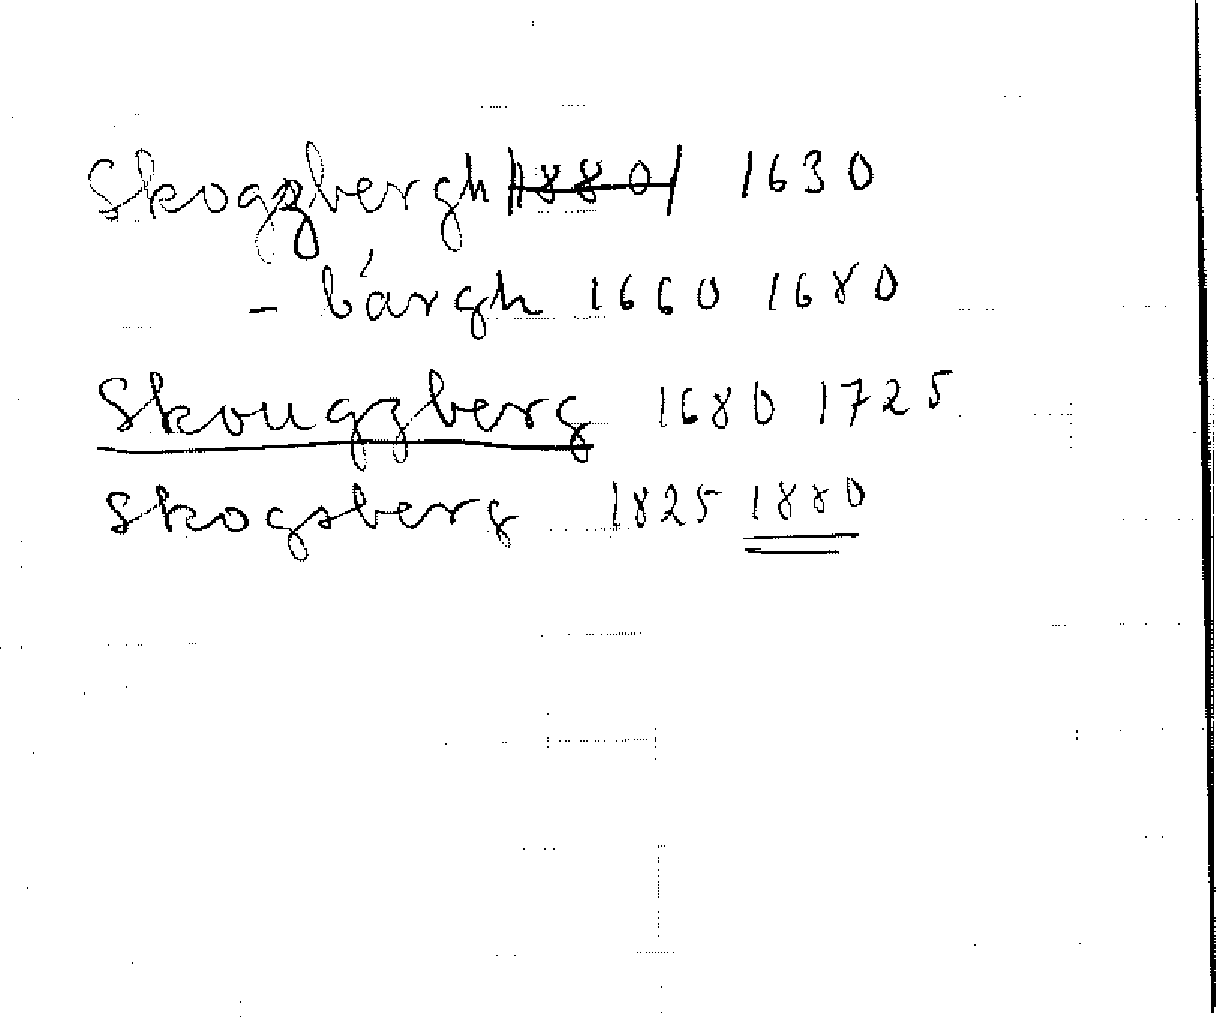 Skogzbergh 1880 1630
- bárgh 1660 1680
Skougzberg 1680 1725
Skogsberg 1825 1880